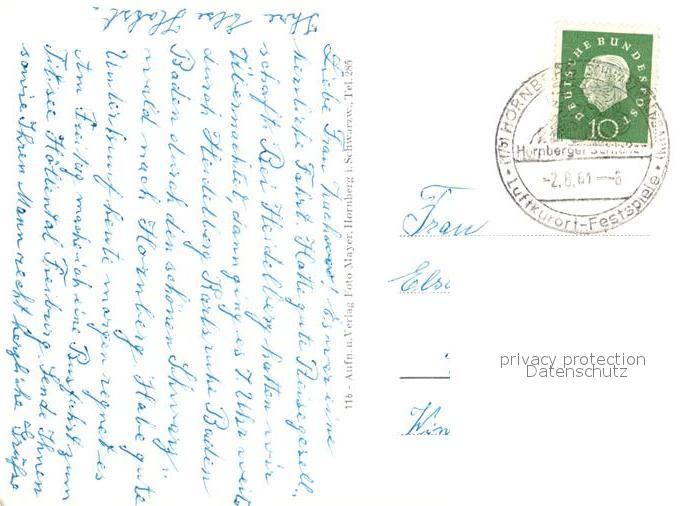 Liebe Frau ! Es war eine
herrliche Fahrt. Hatte gute Reisegesell-
schaft. Bei Heidelberg hatten wir
Übernachtet, dann ging es 7. Uhr weit
durch Heidelberg Karlsruhe Baden
Baden durch den schönen Schwarz-
wald nach Hornberg. Habe gute
Unterkunft heute morgen regnet es
Am Freitag mach ich eine Busfahrt zum
Titisee Höllental Freiburg. Sende Ihnen
sowie Ihrem Mann recht herzliche Grüße
Ihre Else
116 - Aufn. u. Verlag Foto Mayer, Hornberg i. Schwarzw., Tel. 285
DEUTSCHE BUNDESPOST
10
HORNBERG
Hornberger Schießen
-2.8.61-8
Luftkurort-Festspiele
Frau
Els
Win
privacy protection
Datenschutz